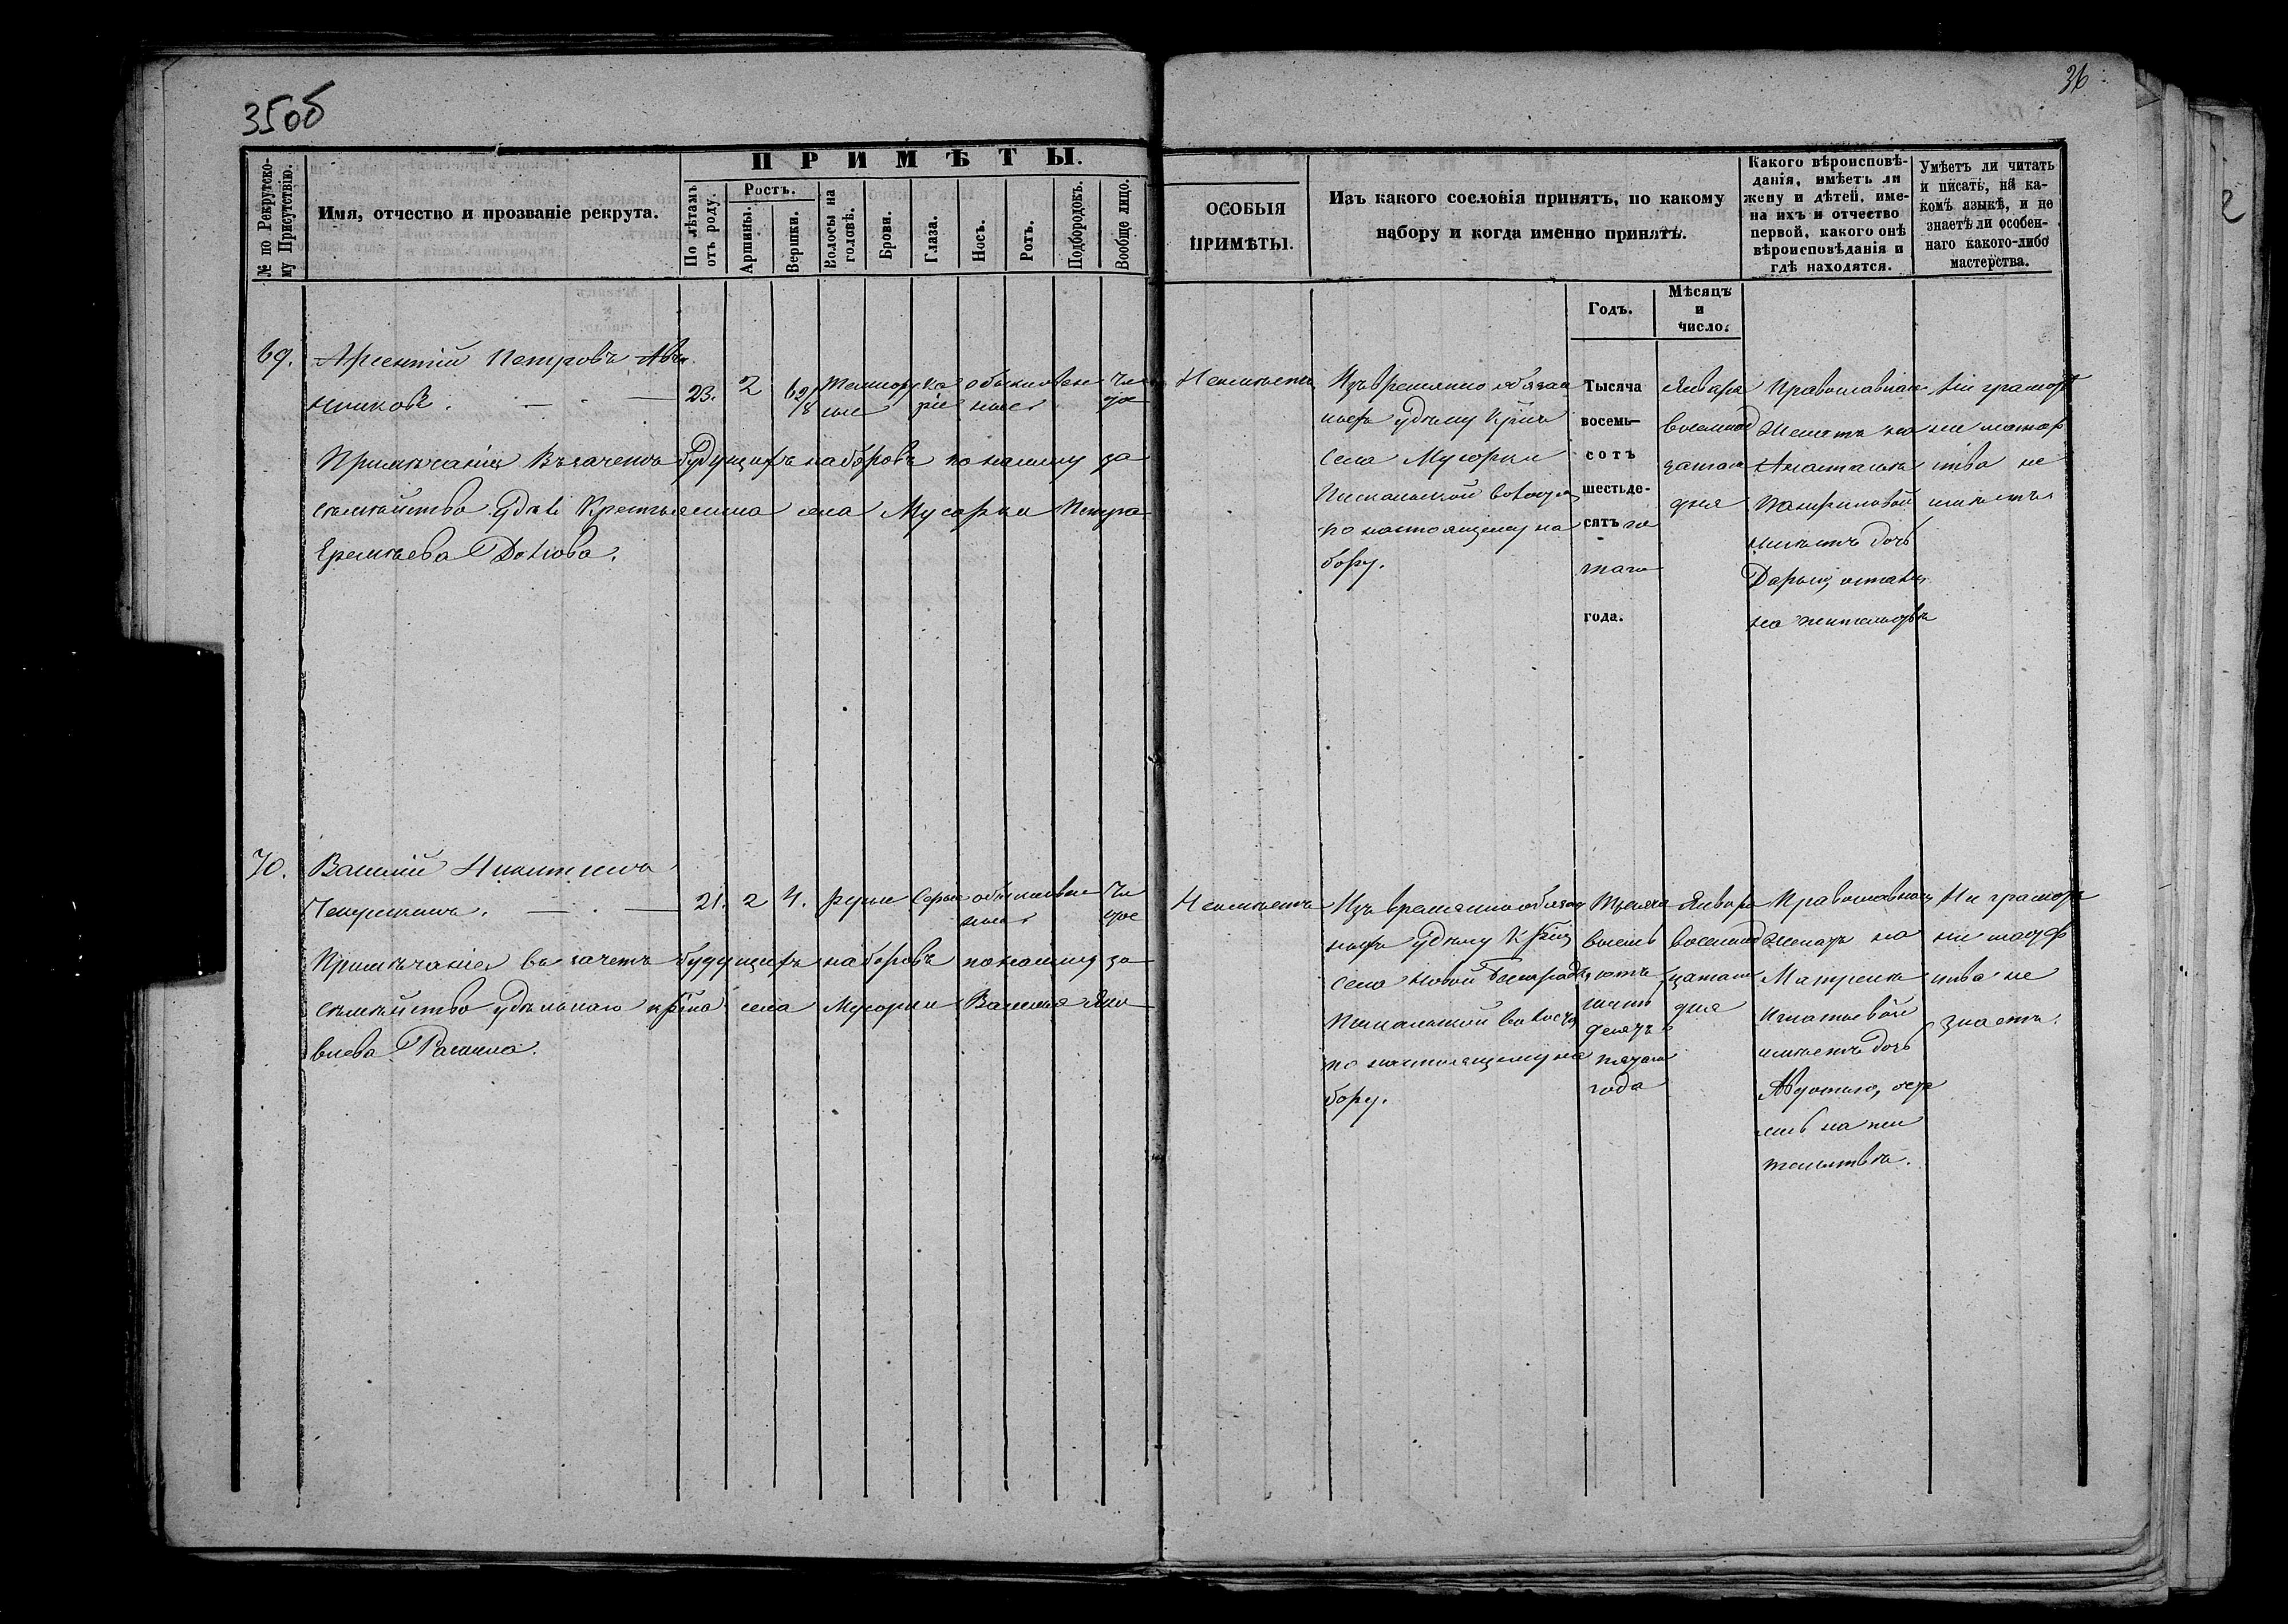 35об
36
№ по Рекрутско-
му Присутствію.
Имя, отчество и прозваніе рекрута.
ПРИМѢТЫ.
По лѣтамъ
отъ роду.
Ростъ.
Аршины.
Вершки.
Волосы на
головѣ.
Брови.
Глаза.
Носъ.
Ротъ.
Подбородокъ.
Вообще лицо.
ОСОБЫЯ
ПРИМѢТЫ.
Изъ какого сословія принятъ, по какому
набору и когда именно принятъ.
Годъ.
Мѣсяцъ
и
число.
Какого вѣроисповѣ-
данія, имѣетъ ли
жену и дѣтей, име-
на ихъ и отчество
первой, какого онѣ
вѣроисповѣданія и
гдѣ находятся.
Умѣетъ ли читать
и писать, на ка-
комъ языкѣ, и не
знаетъ ли особен-
наго какого-либо
мастерства.
69.
Арсентій Петровъ
23.
2
6 2/8
Темнору
сые
ка
ріе
обыкновен
ные
чи
стое
Примѣчаніе Въ зачетъ будущихъ наборовъ по найму за
семейство Удѣл Крестьянина села Мусорки Петра
Еремѣева
Неимѣетъ
Изъ временно обязан
ныхъ удѣльн Крнъ
села Мусорки
волости
по настоящему на
бору.
Тысяча
восемь-
сотъ
шестьде-
сятъ пя
таго
года.
Января
восемнад
цатаго
дня
Православнаго
Женатъ на
Анастасіи
имѣетъ дочь
Дарью, остались
на жительствѣ
Ни грамот
ни мастер
ства не
имѣетъ
70.
Василій Никитинъ
21.
2
4.
русые
Серые
обыкновен
ные
чи
стое
Примѣчаніе въ зачетъ будущихъ наборовъ по найму за
семейство удѣльнаго крнина села Мусорки Василья Яко
влева
Неимѣетъ
Изъ временно обязан
ныхъ удѣльн Крнъ
села Новой
волости
по настоящему на
бору.
Тысяча
восемь
сотъ
шесть
десятъ
пятаго
года
Января
восемнад
цатаго
дня
Православнаго
женатъ на
Матренѣ
Игнатьевой
имѣетъ дочь
Авдотью, оста
лись на жи
тельствѣ.
Ни грамоты
ни мастер
ства не
знаетъ.